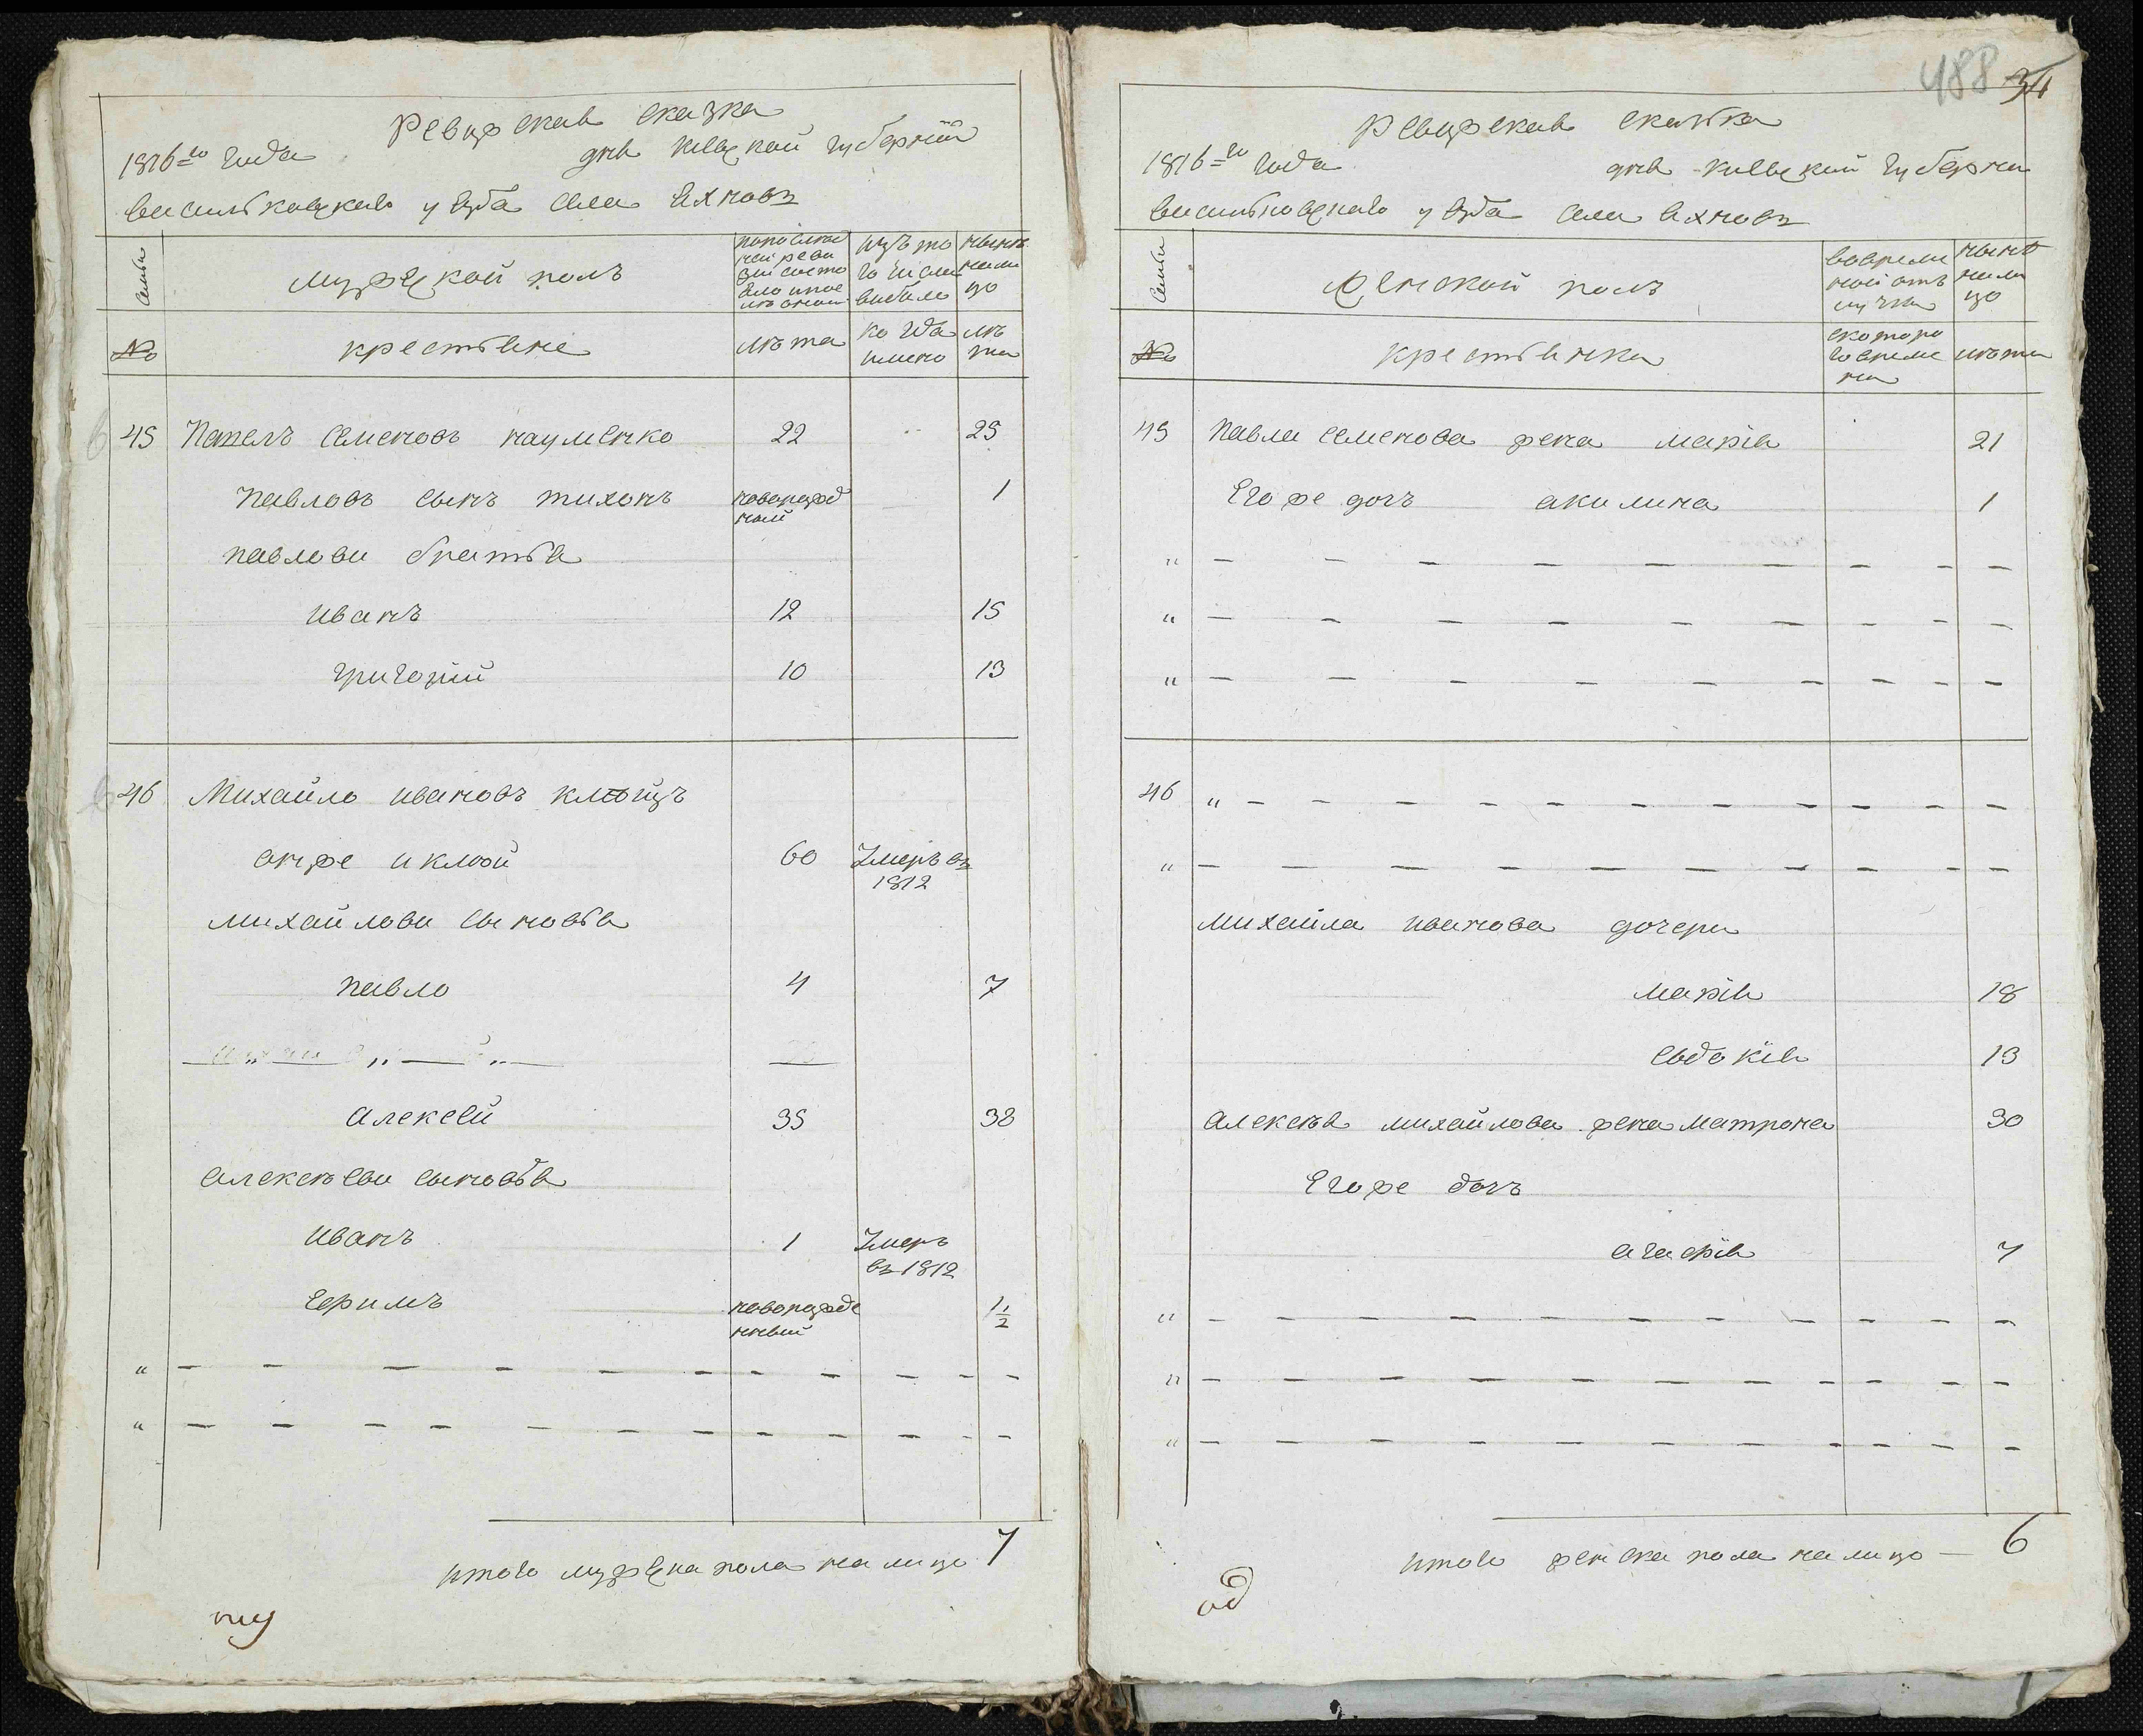 Ревизская сказка
1816=го года дня Киевской губернїи
васильковского уезда села Яхновъ
семьи
мужеской полъ
по последней ревизии состояло и после оной
изъ того числа выбыло
ныне налицо
№
крестьяне
лѣта
когда имено
лѣта
45 Павелъ Семеновъ науменко 22 25
Павловъ сынъ тихонъ новорожд 1
ной
павлови братья
иванъ 12 15
григорий 10 13
46 Михайло ивановъ
60 Умеръ въ
1812
михайлови сыновья
павло 4 7
алексей 35 38
алексѣеви сыновья
иванъ 1 Умеръ
въ 1812
Ефимъ новорожде 1 1/2
нный
итого мужеска пола налицо 7
488 34
Ревизская сказка
1816=го года дня Киевской губернии
васильковского уезда села Яхновъ
семьи
Женской полъ
во временной отлучки
ныне налицо
№
крестьянки
с которого времени
лѣта
45 Павла Семенова жена марія 21
Его же дочъ акилина 1
46
михайла иванова дочери
марія 18
евдокія 13
алексѣя михайлова жена матрона 30
Его же дочъ
агафія 7
итого женска пола налицо — 6